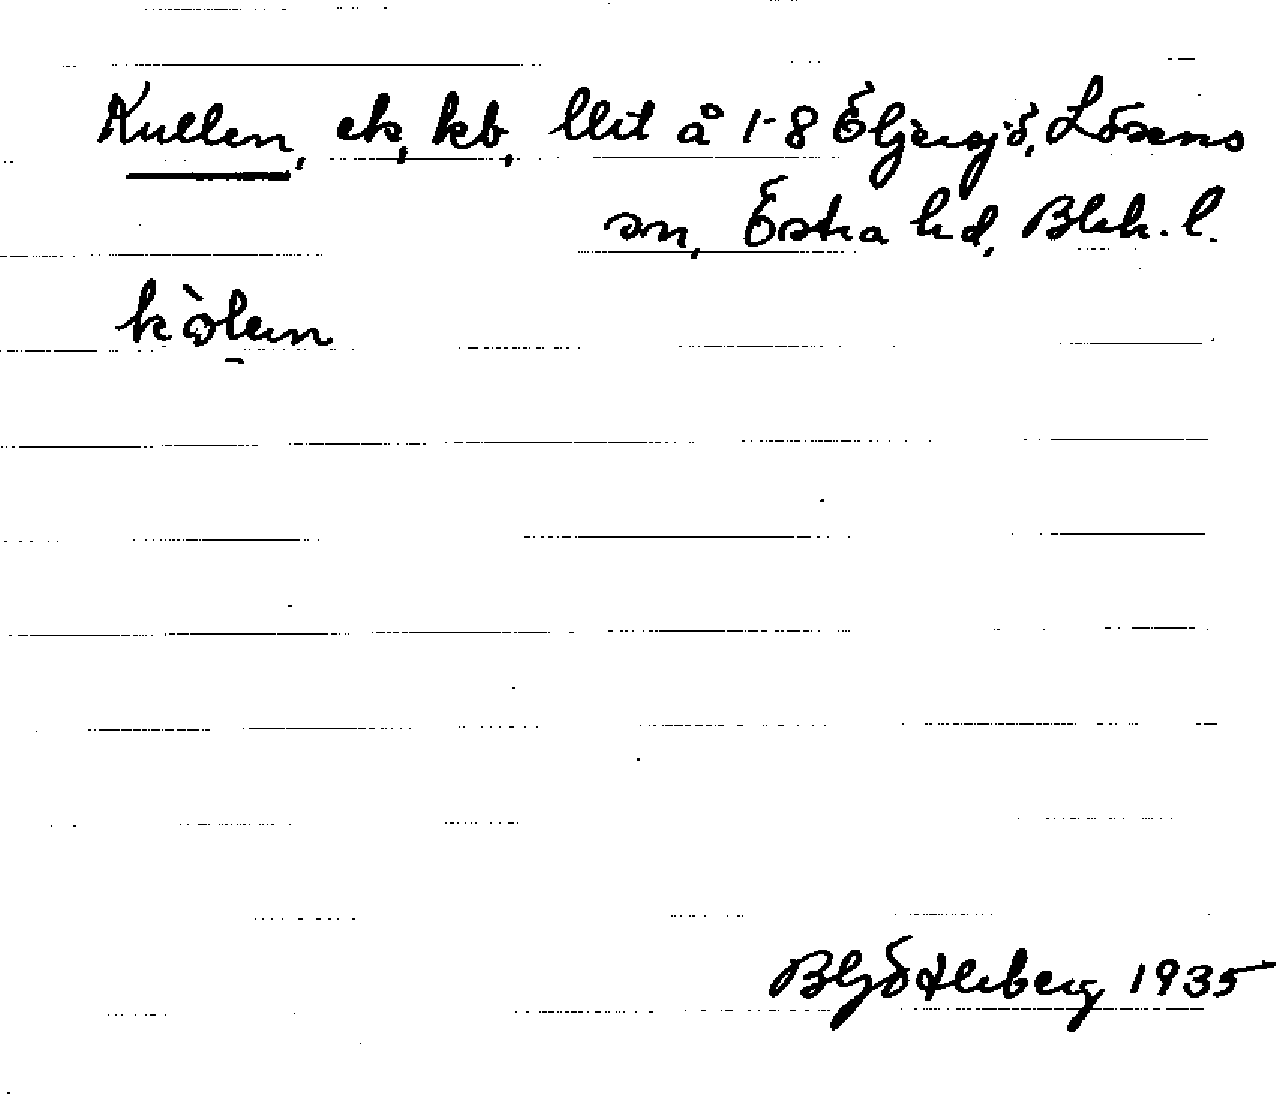 Kullen, ek, kb, llit å 1-8 Öljersjö, Lösens
sn, Östra hd, Blek. l.
kòlen
BGötleberg 1935